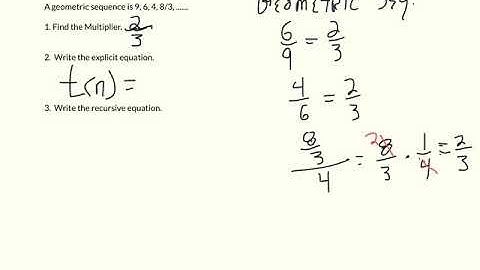 A geometric sequence is 9, 6, 4, 8/3, ......
1. Find the Multiplier. 2/3
2. Write the explicit equation.
t(n) =
3. Write the recursive equation.
GEOMETRIC Seq.
6/9 = 2/3
4/6 = 2/3
8/3 / 4 = 2 8/3 · 1/4 = 2/3